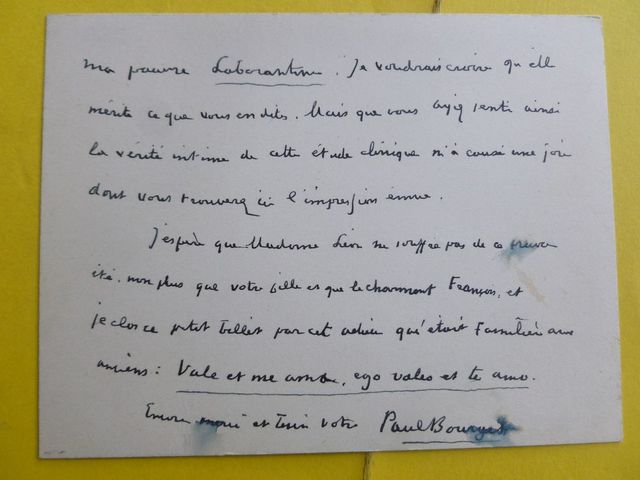 ma pauvre Laborantine. Je voudrais croire qu'elle
mérite ce que vous en dites. Mais que vous ayiez senti ainsi
la vérité intime de cette étude clinique m'a causé une joie
dont vous trouverez ici l'impression émue.
J'espère que Madame Léon ne souffre pas de ce
été, non plus que votre fille et que le charmant François, et
je clos ce petit billet par cet adieu qui était familier aux
anciens : Vale et me ama, ego valeo et te amo.
Encore merci et votre Paul Bourget